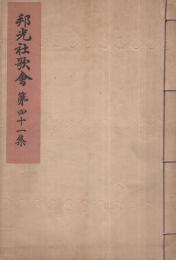 邦光社歌會 第四十一集